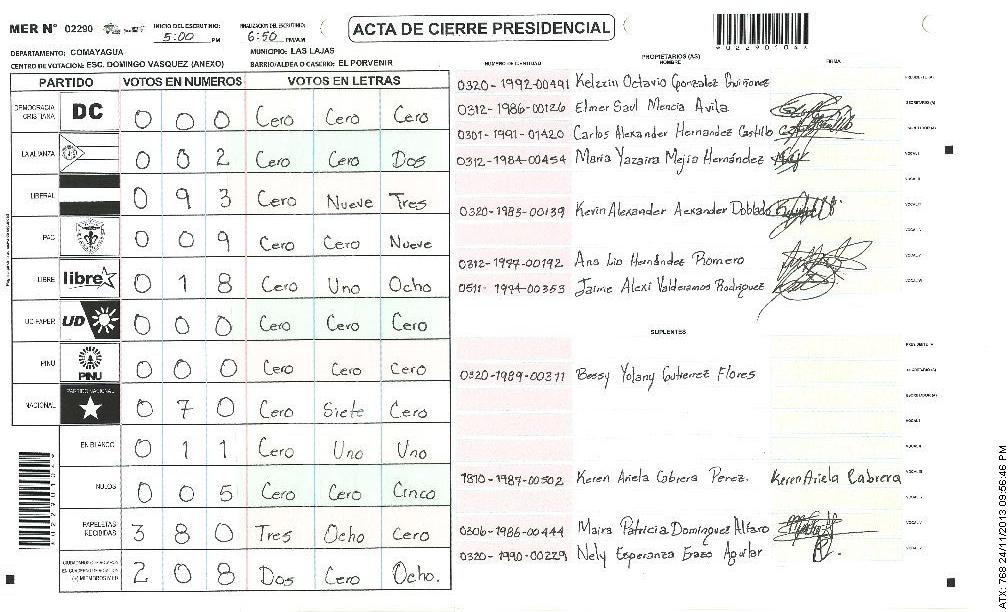 MER N° 02290
INICIO DEL ESCRUTINIO: 5:00 PM
FINALIZACION DEL ESCRUTINIO: 6:50 PM/AM
ACTA DE CIERRE PRESIDENCIAL
DEPARTAMENTO: COMAYAGUA
MUNICIPIO: LAS LAJAS
CENTRO DE VOTACION: ESC. DOMINGO VASQUEZ (ANEXO)
BARRIO/ALDEA O CASERIO: EL PORVENIR
PARTIDO VOTOS EN NUMEROS VOTOS EN LETRAS
DEMOCRACIA CRISTIANA DC 0 0 0 Cero Cero Cero
LA ALIANZA 0 0 2 Cero Cero Dos
LIBERAL 0 9 3 Cero Nueve Tres
PAC 0 0 9 Cero Cero Nueve
LIBRE libre 0 1 8 Cero Uno Ocho
UD-FAPER UD 0 0 0 Cero Cero Cero
PINU PINU 0 0 0 Cero Cero Cero
NACIONAL PARTIDO NACIONAL 0 7 0 Cero Siete Cero
EN BLANCO 0 1 1 Cero Uno Uno
NULOS 0 0 5 Cero Cero Cinco
PAPELETAS RECIBIDAS 3 8 0 Tres Ocho Cero
(+) MIEMBROS MER 2 0 8 Dos Cero Ocho.
NUMERO DE IDENTIDAD
PROPIETARIOS (AS)
NOMBRE
FIRMA
0320-1992-00491 Kelzzin Octavio Gonzalez Quiñonez
0312-1986-00126 Elmer Saul Mencia Avila
0301-1991-01420 Carlos Alexander Hernandez Castillo
0312-1984-00454 Maria Yazaira Mejia Hernández
0320-1983-00139 Kevin Alexander Aexander Doblado
0312-1997-00192 Ana Lio Hernández Romero
0511-1994-00353 Jaime Alexi Valderamos Rodriguez
SUPLENTES
0320-1989-00311 Bessy Yolany Gutierrez Flores
1810-1987-00502 Keren Ariela Cabrera Perez. Keren Ariela Cabrera
0306-1986-00444 Maira Patricia Dominguez Alfaro
0320-1990-00229 Nely Esperanza Bazo Aguilar
ATX: 768 24/11/2013 09:56:46 PM